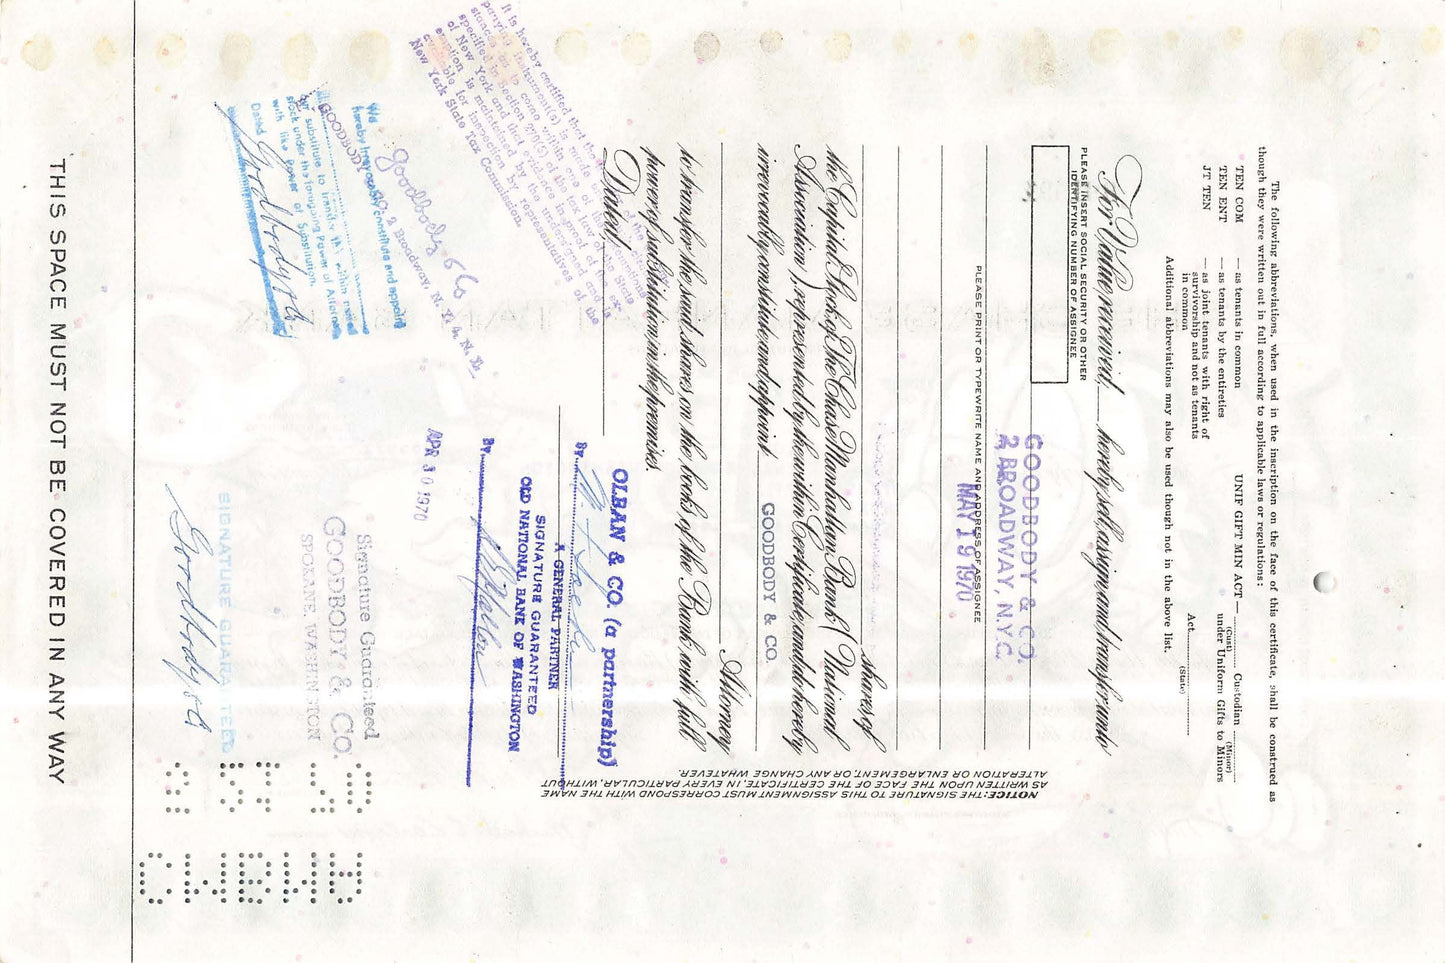 The following abbreviations, when used in the inscription on the face of this certificate, shall be construed as
though they were written out in full according to applicable laws or regulations:
TEN COM — as tenants in common UNIF GIFT MIN ACT — Custodian
(Cust) (Minor)
TEN ENT — as tenants by the entireties under Uniform Gifts to Minors
JT TEN — as joint tenants with right of
survivorship and not as tenants
in common
Act
(State)
Additional abbreviations may also be used though not in the above list.
For Value received, hereby sell, assign and transfer unto
PLEASE INSERT SOCIAL SECURITY OR OTHER
IDENTIFYING NUMBER OF ASSIGNEE
GOODBODY & CO.
2 BROADWAY, N.Y.C.
PLEASE PRINT OR TYPEWRITE NAME AND ADDRESS OF ASSIGNEE
MAY 19 1970
shares of
the Capital Stock of The Chase Manhattan Bank (National
Association), represented by the within Certificate, and do hereby
irrevocably constitute and appoint GOODBODY & CO.
Attorney
to transfer the said shares on the books of the Bank with full
power of substitution in the premises.
Dated,
OLBAN & CO. (a partnership)
BY
A GENERAL PARTNER
SIGNATURE GUARANTEED
OLD NATIONAL BANK OF WASHINGTON
BY
APR 30 1970
NOTICE: THE SIGNATURE TO THIS ASSIGNMENT MUST CORRESPOND WITH THE NAME
AS WRITTEN UPON THE FACE OF THE CERTIFICATE, IN EVERY PARTICULAR, WITHOUT
ALTERATION OR ENLARGEMENT, OR ANY CHANGE WHATEVER.
It is hereby certified that the
specified in Section 270(5) of the tax law of the State
of New York and that evidence in proof of the ex-
emption is maintained by the undersigned and is
available for inspection by representatives of the
New York State Tax Commission.
Goodbody & Co
We
hereby irrevocably constitute and appoint
GOODBODY & CO. 2 Broadway, N. Y. 4, N. Y.
our substitute to transfer the within named
stock under the foregoing Power of Attorney
with like Power of Substitution.
Dated
Goodbody & Co
Signature Guaranteed
GOODBODY & CO.
SPOKANE, WASHINGTON
SIGNATURE GUARANTEED
Goodbody & Co
THIS SPACE MUST NOT BE COVERED IN ANY WAY